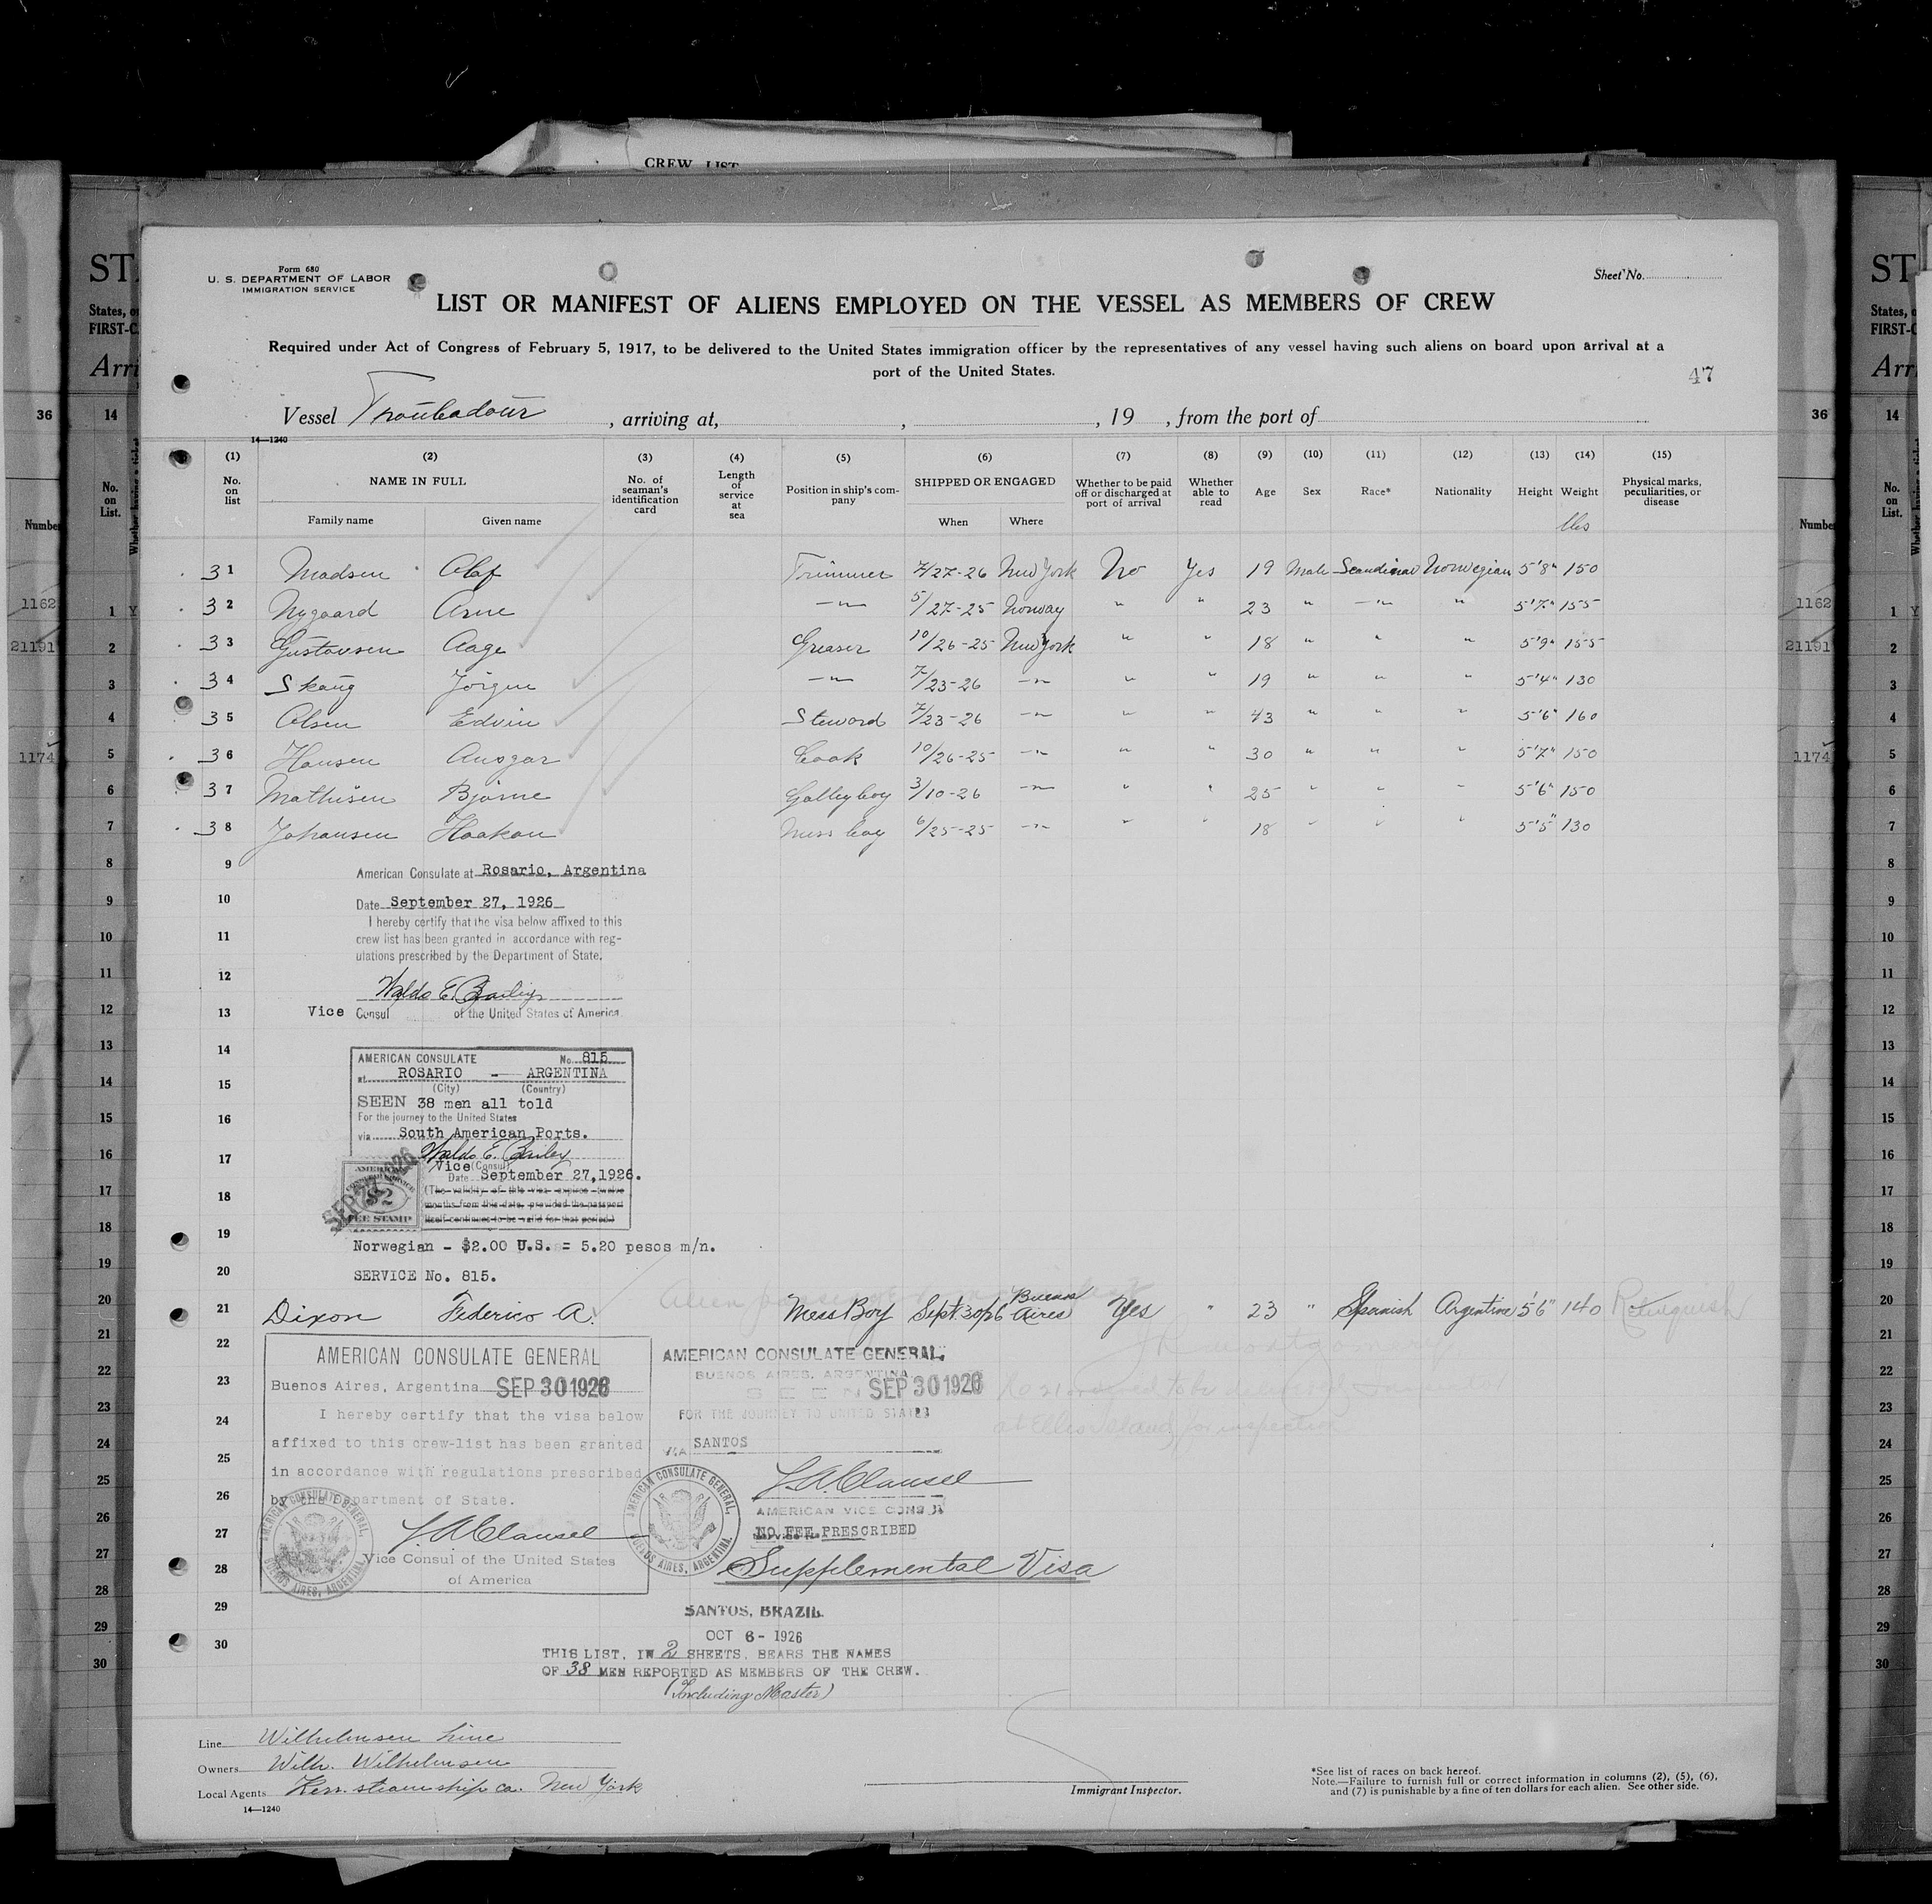 CREW LIST
Form 680
U. S. DEPARTMENT OF LABOR
IMMIGRATION SERVICE
Sheet No.
LIST OR MANIFEST OF ALIENS EMPLOYED ON THE VESSEL AS MEMBERS OF CREW
Required under Act of Congress of February 5, 1917, to be delivered to the United States immigration officer by the representatives of any vessel having such aliens on board upon arrival at a
port of the United States.
47
Vessel Troubadour, arriving at, , 19 , from the port of
14—1240
(1) (2) (3) (4) (5) (6) (7) (8) (9) (10) (11) (12) (13) (14) (15)
No. on list NAME IN FULL No. of seaman's identification card Length of service at sea Position in ship's company SHIPPED OR ENGAGED Whether to be paid off or discharged at port of arrival Whether able to read Age Sex Race* Nationality Height Weight Physical marks, peculiarities, or disease
Family name Given name When Where lbs
31 Madsen Olaf Trimmer 7/27-26 New York No Yes 19 Male Scandinav Norwegian 5'8" 150
32 Nygaard Arne —"— 5/27-25 Norway " " 23 " —"— " 5'7" 155
33 Gustavsen Aage Greaser 10/26-25 New York " " 18 " " " 5'9" 155
34 Skaug Jörgen —"— 7/23-26 —"— " " 19 " " " 5'4" 130
35 Olsen Edvin Steward 7/23-26 —"— " " 43 " " " 5'6" 160
36 Hansen Ansgar Cook 10/26-25 —"— " " 30 " " " 5'7" 150
37 Mathisen Bjarne Galleyboy 3/10-26 —"— " " 25 " " " 5'6" 150
38 Johansen Haakon Mess boy 6/25-25 —"— " " 18 " " " 5'5" 130
9
American Consulate at Rosario, Argentina
10
Date September 27, 1926
I hereby certify that the visa below affixed to this
11
crew list has been granted in accordance with reg-
ulations prescribed by the Department of State.
12
Waldo E. Bailey
13
Vice Consul of the United States of America
14
AMERICAN CONSULATE No. 815
at ROSARIO - ARGENTINA
15
(City) (Country)
SEEN 38 men all told
16
For the journey to the United States
via South American Ports.
17
Waldo E. Bailey
Vice (Consul)
Date September 27, 1926.
18
(The validity of this visa expires twelve
months from this date, provided the passport
itself continues to be valid for that period.)
AMERICAN
CONSULAR SERVICE
$2
FEE STAMP
SEP 27 1926
19
Norwegian - $2.00 U.S. = 5.20 pesos m/n.
20
SERVICE No. 815.
21 Dixon Federico A. Mess Boy Sept. 30/26 Buenos Aires Yes " 23 " Spanish Argentine 5'6" 140 Relinquish
22
AMERICAN CONSULATE GENERAL
23
Buenos Aires, Argentina SEP 30 1926
I hereby certify that the visa below
24
affixed to this crew-list has been granted
25
in accordance with regulations prescribed
26
by the Department of State.
27
Vice Consul of the United States
28
of America
AMERICAN CONSULATE GENERAL,
BUENOS AIRES, ARGENTINA
SEEN SEP 30 1926
FOR THE JOURNEY TO UNITED STATES
VIA SANTOS
AMERICAN VICE CONSUL
NO FEE PRESCRIBED
Supplemental Visa
AMERICAN CONSULATE GENERAL,
BUENOS AIRES, ARGENTINA
AMERICAN CONSULATE GENERAL,
BUENOS AIRES, ARGENTINA
at Ellis Island for inspection
29
SANTOS, BRAZIL
OCT 6 - 1926
30
THIS LIST, IN 2 SHEETS, BEARS THE NAMES
OF 38 MEN REPORTED AS MEMBERS OF THE CREW.
(Including Master)
Line Wilhelmsen Line
Owners Wilh. Wilhelmsen
Local Agents Kerr steamship co. New York
14—1240
Immigrant Inspector.
*See list of races on back hereof.
Note.—Failure to furnish full or correct information in columns (2), (5), (6),
and (7) is punishable by a fine of ten dollars for each alien. See other side.